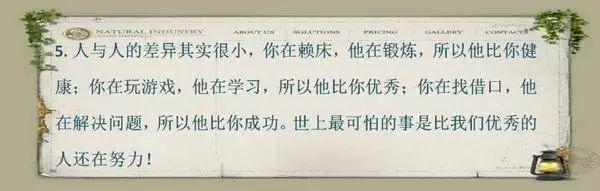 NATURAL INDUSTRY
ABOUT US
SOLUTIONS
PRICING
GALLERY
CONTACTS
5. 人与人的差异其实很小，你在赖床，他在锻炼，所以他比你健
康；你在玩游戏，他在学习，所以他比你优秀；你在找借口，他
在解决问题，所以他比你成功。世上最可怕的事是比我们优秀的
人还在努力！